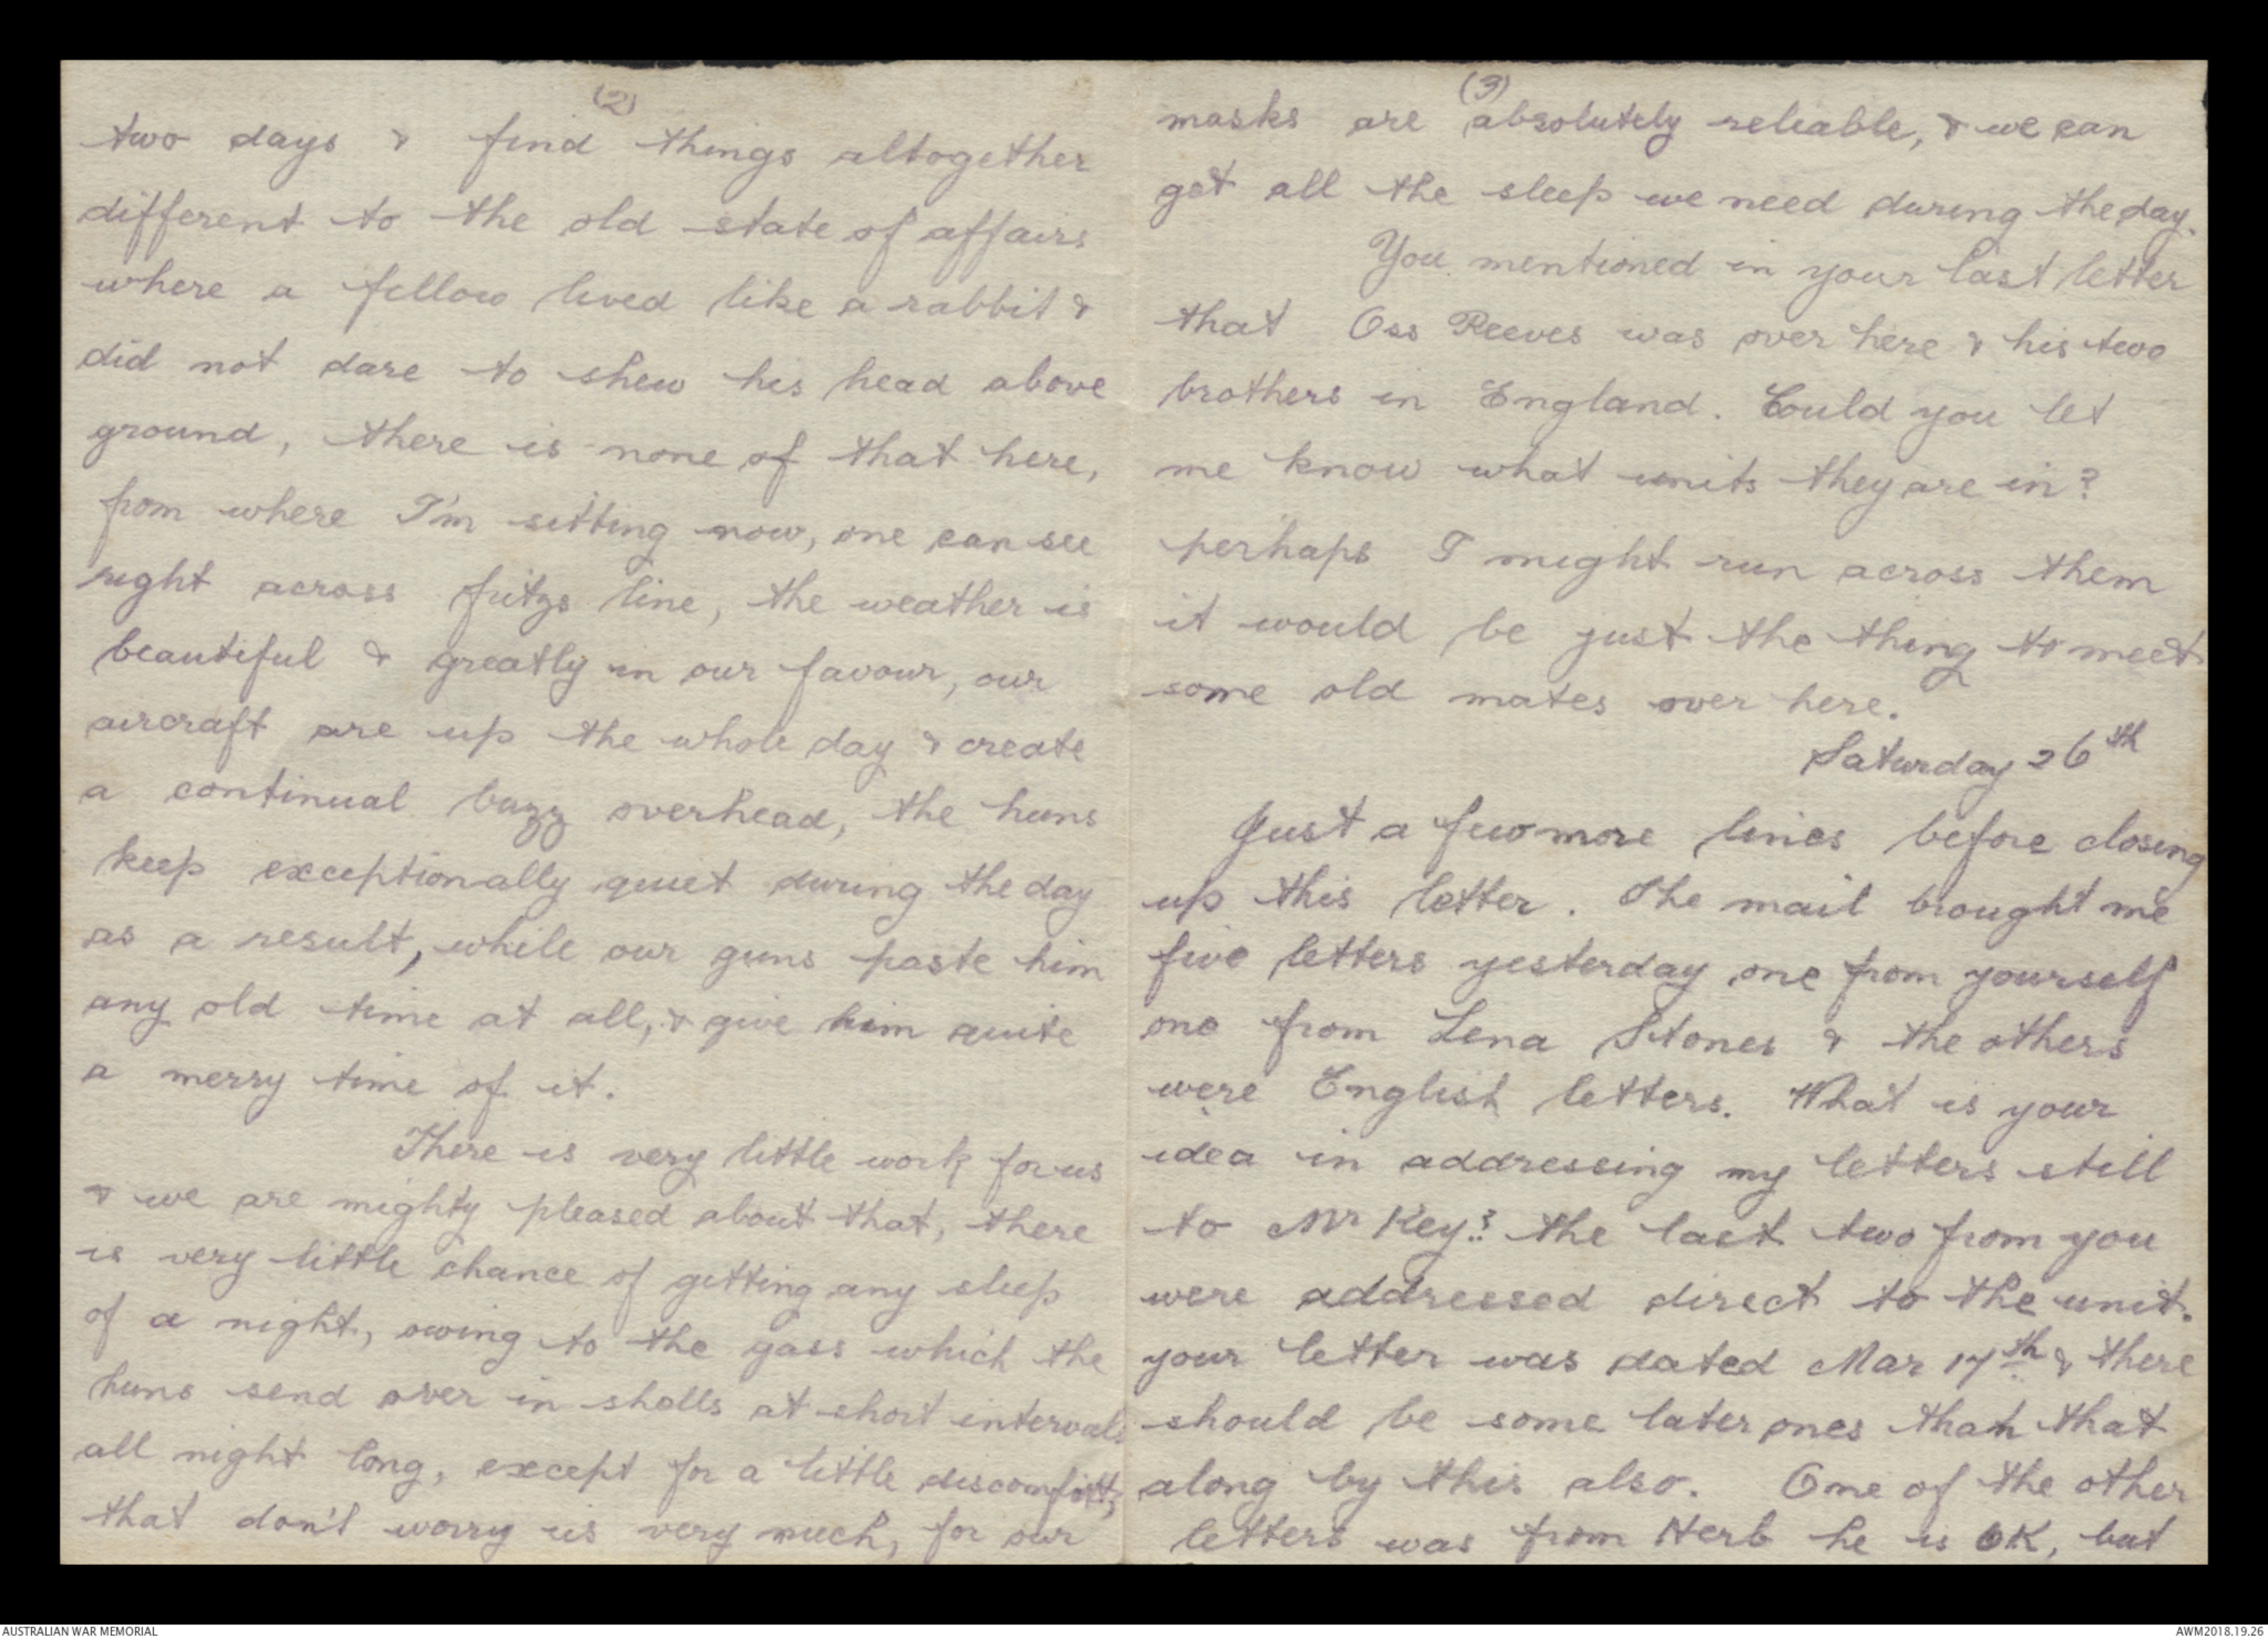 (2)
two days & find things altogether
different to the old state of affairs
where a fellow lived like a rabbit &
did not dare to shew his head above
ground, there is none of that here,
from where I'm sitting now, one can see
right across fritzs line, the weather is
beautiful & greatly in our favour, our
aircraft are up the whole day & create
a continual buzz overhead, the huns
keep exceptionally quiet during the day
as a result, while our guns paste him
any old time at all, & give him quite
a merry time of it.
There is very little work for us
& we are mighty pleased about that, there
is very little chance of getting any sleep
of a night, owing to the gass which the
huns send over in shells at short intervals
all night long, except for a little discomfort,
that don't worry us very much, for our
(3)
masks are absolutely reliable, & we can
get all the sleep we need during the day.
You mentioned in your last letter
that Oss Reeves was over here & his two
brothers in England. Could you let
me know what units they are in?
perhaps I might run across them
it would be just the thing to meet
some old mates over here.
Saturday 26th
Just a few more lines before closing
up this letter. The mail brought me
five letters yesterday one from yourself
one from Lena Stones & the others
were English letters. What is your
idea in addressing my letters still
to Mr Key? the last two from you
were addressed direct to the unit.
your letter was dated Mar 17th & there
should be some later ones than that
along by this also. One of the other
letters was from Herb he is OK, but
AUSTRALIAN WAR MEMORIAL
AWM2018.19.26